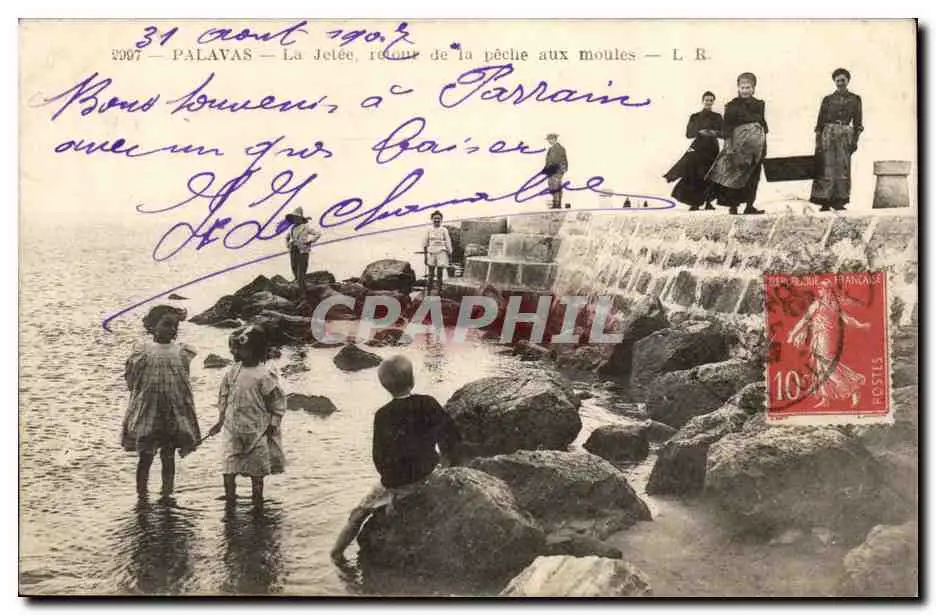 31 août 1907
2997 — PALAVAS — La Jetée, retour de la pêche aux moules — L R.
Bons souvenirs à Parrain
avec un gros baiser
CPAPHIL
REPUBLIQUE FRANÇAISE
10c POSTES